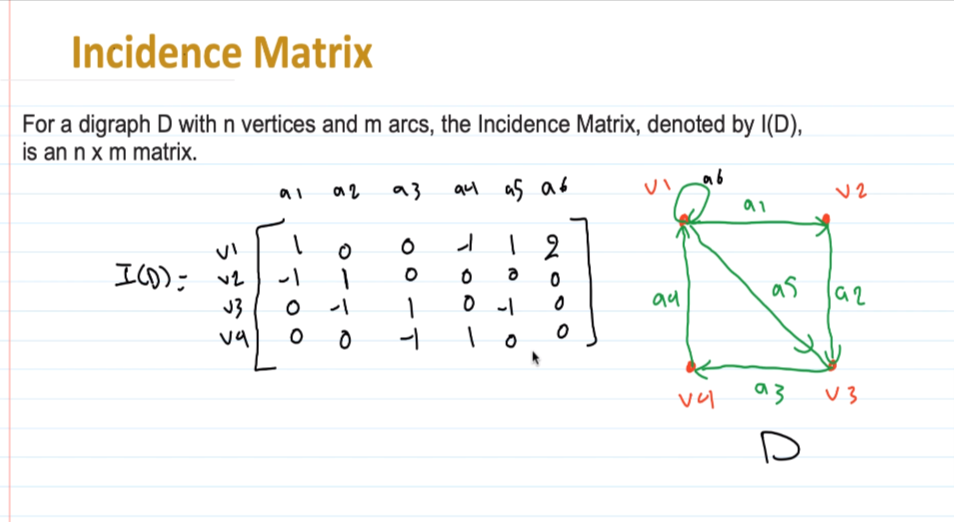 Incidence Matrix
For a digraph D with n vertices and m arcs, the Incidence Matrix, denoted by I(D),
is an n x m matrix.
a1 a2 a3 a4 a5 a6
I(D) =
v1 1 0 0 -1 1 2
v2 -1 1 0 0 0 0
v3 0 -1 1 0 -1 0
v4 0 0 -1 1 0 0
v1 a6 v2
a1
a4 a5 a2
v4 a3 v3
D